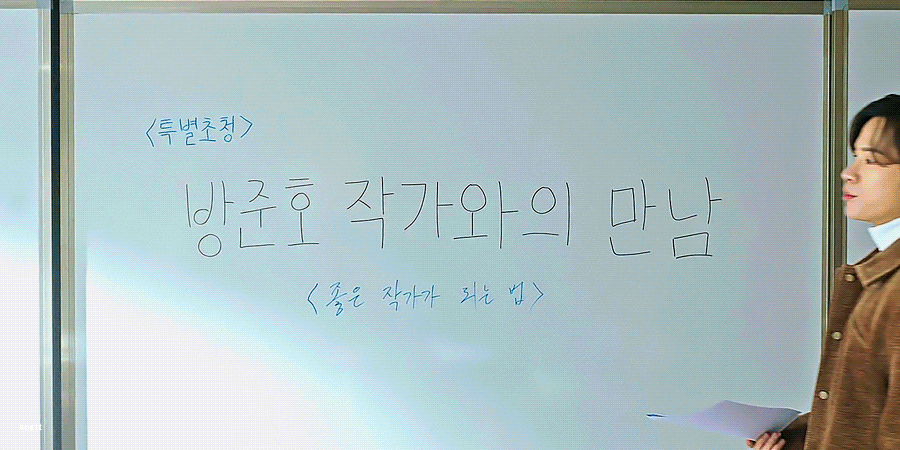 <특별초청>
방준호 작가와의 만남
<좋은 작가가 되는 법>